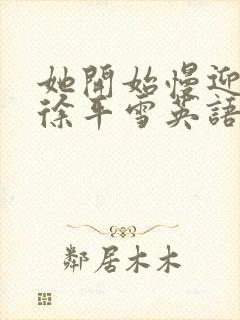 她開始慢迎
徐平雪英語
鄰居木木